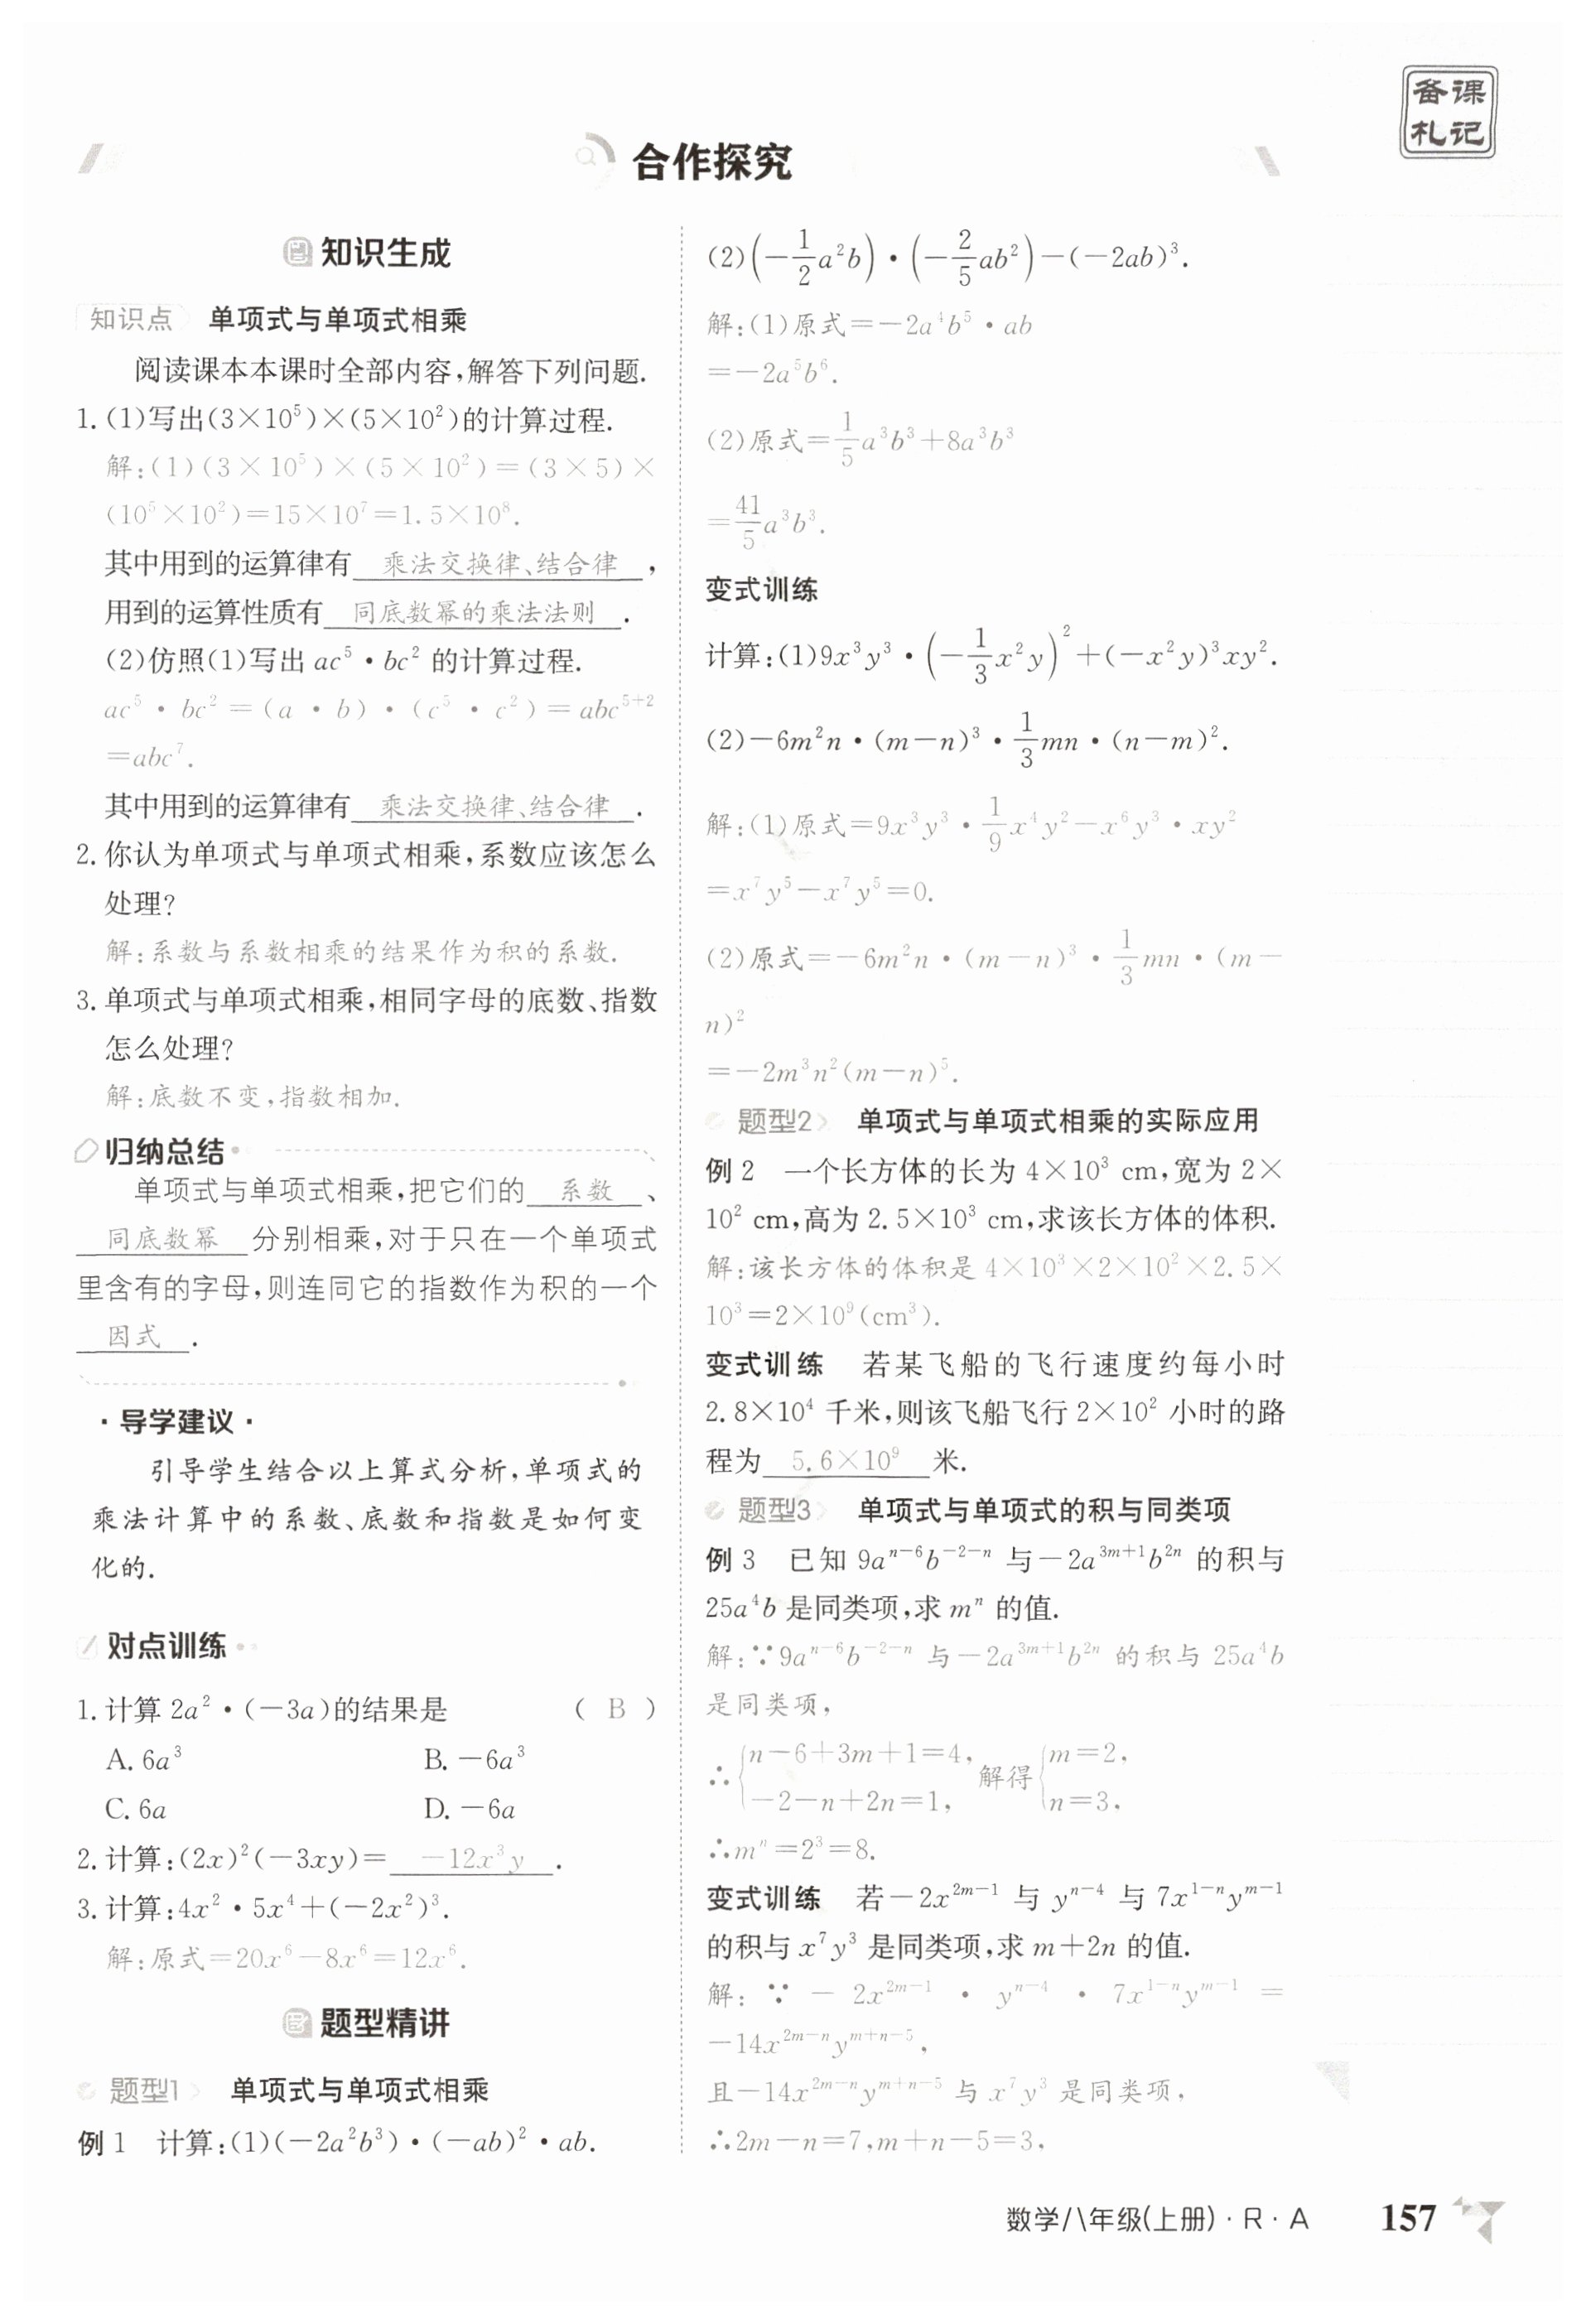 备课
札记
合作探究
知识生成
知识点 单项式与单项式相乘
阅读课本本课时全部内容,解答下列问题.
1. (1)写出(3×10⁵)×(5×10²)的计算过程.
解:(1)(3×10⁵)×(5×10²)=(3×5)×
(10⁵×10²)=15×10⁷=1.5×10⁸.
其中用到的运算律有 乘法交换律、结合律 ,
用到的运算性质有 同底数幂的乘法法则 .
(2)仿照(1)写出 ac⁵·bc² 的计算过程.
ac⁵·bc²=(a·b)·(c⁵·c²)=abc⁵⁺²
=abc⁷.
其中用到的运算律有 乘法交换律、结合律 .
2. 你认为单项式与单项式相乘,系数应该怎么
处理?
解:系数与系数相乘的结果作为积的系数.
3. 单项式与单项式相乘,相同字母的底数、指数
怎么处理?
解:底数不变,指数相加.
归纳总结
单项式与单项式相乘,把它们的 系数 、
同底数幂 分别相乘,对于只在一个单项式
里含有的字母,则连同它的指数作为积的一个
因式 .
·导学建议·
引导学生结合以上算式分析,单项式的
乘法计算中的系数、底数和指数是如何变
化的.
对点训练
1. 计算 2a²·(-3a)的结果是 ( B )
A. 6a³ B. -6a³
C. 6a D. -6a
2. 计算:(2x)²(-3xy)= -12x³y .
3. 计算:4x²·5x⁴+(-2x²)³.
解:原式=20x⁶-8x⁶=12x⁶.
题型精讲
题型1 单项式与单项式相乘
例 1 计算:(1)(-2a²b³)·(-ab)²·ab.
(2)(-1/2 a²b)·(-2/5 ab²)-(-2ab)³.
解:(1)原式=-2a⁴b⁵·ab
=-2a⁵b⁶.
(2)原式=1/5 a³b³+8a³b³
=41/5 a³b³.
变式训练
计算:(1)9x³y³·(-1/3 x²y)²+(-x²y)³xy².
(2)-6m²n·(m-n)³·1/3 mn·(n-m)².
解:(1)原式=9x³y³·1/9 x⁴y²-x⁶y³·xy²
=x⁷y⁵-x⁷y⁵=0.
(2)原式=-6m²n·(m-n)³·1/3 mn·(m-
n)²
=-2m³n²(m-n)⁵.
题型2 单项式与单项式相乘的实际应用
例 2 一个长方体的长为 4×10³ cm,宽为 2×
10² cm,高为 2.5×10³ cm,求该长方体的体积.
解:该长方体的体积是 4×10³×2×10²×2.5×
10³=2×10⁹(cm³).
变式训练 若某飞船的飞行速度约每小时
2.8×10⁴ 千米,则该飞船飞行 2×10² 小时的路
程为 5.6×10⁹ 米.
题型3 单项式与单项式的积与同类项
例 3 已知 9aⁿ⁻⁶b⁻²⁻ⁿ 与-2a³ᵐ⁺¹b²ⁿ 的积与
25a⁴b 是同类项,求 mⁿ 的值.
解:∵9aⁿ⁻⁶b⁻²⁻ⁿ 与-2a³ᵐ⁺¹b²ⁿ 的积与 25a⁴b
是同类项,
∴{n-6+3m+1=4, -2-n+2n=1, 解得{m=2, n=3,
∴mⁿ=2³=8.
变式训练 若-2x²ᵐ⁻¹ 与 yⁿ⁻⁴ 与 7x¹⁻ⁿyᵐ⁻¹
的积与 x⁷y³ 是同类项,求 m+2n 的值.
解:∵-2x²ᵐ⁻¹·yⁿ⁻⁴·7x¹⁻ⁿyᵐ⁻¹=
-14x²ᵐ⁻ⁿyᵐ⁺ⁿ⁻⁵,
且-14x²ᵐ⁻ⁿyᵐ⁺ⁿ⁻⁵ 与 x⁷y³ 是同类项,
∴2m-n=7,m+n-5=3,
数学/八年级(上册)·R·A 157